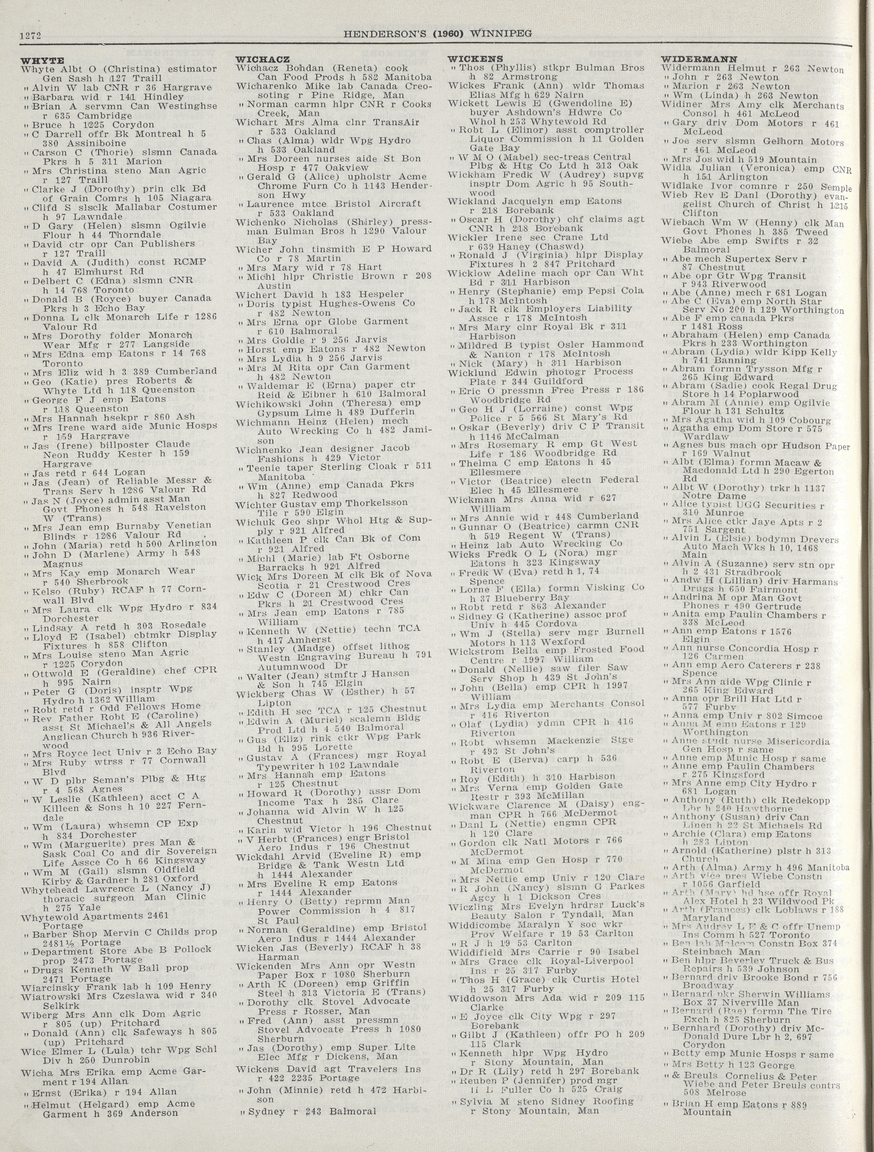 1272
HENDERSON'S (1960) WINNIPEG
WHYTE
Whyte Albt O (Christina) estimator
Gen Sash h 127 Traill
" Alvin W lab CNR r 36 Hargrave
" Barbara wid r 141 Hindley
" Brian A servmn Can Westinghse
r 635 Cambridge
" Bruce h 1225 Corydon
" C Darrell offr Bk Montreal h 5
380 Assiniboine
" Carson C (Thorie) slsmn Canada
Pkrs h 5 311 Marion
" Mrs Christina steno Man Agric
r 127 Traill
" Clarke J (Dorothy) prin clk Bd
of Grain Comrs h 105 Niagara
" Cliffd S slsclk Mallabar Costumer
h 97 Lawndale
" D Gary (Helen) slsmn Ogilvie
Flour h 44 Thorndale
" David ctr opr Can Publishers
r 127 Traill
" David A (Judith) const RCMP
h 47 Elmhurst Rd
" Delbert C (Edna) slsmn CNR
h 14 768 Toronto
" Donald B (Royce) buyer Canada
Pkrs h 3 Echo Bay
" Donna L clk Monarch Life r 1286
Valour Rd
" Mrs Dorothy folder Monarch
Wear Mfg r 277 Langside
" Mrs Edna emp Eatons r 14 768
Toronto
" Mrs Eliz wid h 3 389 Cumberland
" Geo (Katie) pres Roberts &
Whyte Ltd h 118 Queenston
" George F J emp Eatons
r 118 Queenston
" Mrs Hannah hsekpr r 860 Ash
" Mrs Irene ward aide Munic Hosps
r 159 Hargrave
" Jas (Irene) billposter Claude
Neon Ruddy Kester h 159
Hargrave
" Jas retd r 644 Logan
" Jas (Jean) of Reliable Messr &
Trans Serv h 1286 Valour Rd
" Jas N (Joyce) admin asst Man
Govt Phones h 548 Ravelston
W (Trans)
" Mrs Jean emp Burnaby Venetian
Blinds r 1286 Valour Rd
" John (Maria) retd h 500 Arlington
" John D (Marlene) Army h 548
Magnus
" Mrs Kay emp Monarch Wear
r 540 Sherbrook
" Kelso (Ruby) RCAF h 77 Corn-
wall Blvd
" Mrs Laura clk Wpg Hydro r 834
Dorchester
" Lindsay A retd h 303 Rosedale
" Lloyd E (Isabel) cbtmkr Display
Fixtures h 858 Clifton
" Mrs Louise steno Man Agric
r 1225 Corydon
" Ottwold E (Geraldine) chef CPR
h 995 Nairn
" Peter G (Doris) insptr Wpg
Hydro h 1362 William
" Robt retd r Odd Fellows Home
" Rev Father Robt E (Caroline)
asst St Michael's & All Angels
Anglican Church h 936 River-
wood
" Mrs Royce lect Univ r 3 Echo Bay
" Mrs Ruby wtrss r 77 Cornwall
Blvd
" W D plbr Seman's Plbg & Htg
r 4 568 Agnes
" W Leslie (Kathleen) acct C A
Killeen & Sons h 10 227 Fern-
dale
" Wm (Laura) whsemn CP Exp
h 834 Dorchester
" Wm (Marguerite) pres Man &
Sask Coal Co and dir Sovereign
Life Assce Co h 66 Kingsway
" Wm M (Gail) slsmn Oldfield
Kirby & Gardner h 281 Oxford
Whytehead Lawrence L (Nancy J)
thoracic surgeon Man Clinic
h 275 Yale
Whytewold Apartments 2461
Portage
" Barber Shop Mervin C Childs prop
2481½ Portage
" Department Store Abe B Pollock
prop 2473 Portage
" Drugs Kenneth W Ball prop
2471 Portage
Wiarcinsky Frank lab h 109 Henry
Wiatrowski Mrs Czeslawa wid r 340
Selkirk
Wiberg Mrs Ann clk Dom Agric
r 805 (up) Pritchard
" Donald (Ann) clk Safeways h 805
(up) Pritchard
Wice Elmer L (Lula) tchr Wpg Schl
Div h 250 Dunrobin
Wicha Mrs Erika emp Acme Gar-
ment r 194 Allan
" Ernst (Erika) r 194 Allan
" Helmut (Helgard) emp Acme
Garment h 369 Anderson
WICHACZ
Wichacz Bohdan (Reneta) cook
Can Food Prods h 582 Manitoba
Wicharenko Mike lab Canada Creo-
soting r Pine Ridge, Man
" Norman carmn hlpr CNR r Cooks
Creek, Man
Wichart Mrs Alma clnr TransAir
r 533 Oakland
" Chas (Alma) wldr Wpg Hydro
h 533 Oakland
" Mrs Doreen nurses aide St Bon
Hosp r 477 Oakview
" Gerald G (Alice) upholstr Acme
Chrome Furn Co h 1143 Hender-
son Hwy
" Laurence mtce Bristol Aircraft
r 533 Oakland
Wichenko Nicholas (Shirley) press-
man Bulman Bros h 1290 Valour
Bay
Wicher John tinsmith E P Howard
Co r 78 Martin
" Mrs Mary wid r 78 Hart
" Michl hlpr Christie Brown r 208
Austin
Wichert David h 183 Hespeler
" Doris typist Hughes-Owens Co
r 482 Newton
" Mrs Erna opr Globe Garment
r 610 Balmoral
" Mrs Goldie r 9 256 Jarvis
" Horst emp Eatons r 482 Newton
" Mrs Lydia h 9 256 Jarvis
" Mrs M Rita opr Can Garment
h 482 Newton
" Waldemar E (Erna) paper ctr
Reid & Eibner h 610 Balmoral
Wichikowski John (Theresa) emp
Gypsum Lime h 489 Dufferin
Wichmann Heinz (Helen) mech
Auto Wrecking Co h 482 Jami-
son
Wichnenko Jean designer Jacob
Fashions h 429 Victor
" Teenie taper Sterling Cloak r 511
Manitoba
" Wm (Anne) emp Canada Pkrs
h 827 Redwood
Wichter Gustav emp Thorkelsson
Tile r 590 Elgin
Wichuk Geo shpr Whol Htg & Sup-
ply r 921 Alfred
" Kathleen P clk Can Bk of Com
r 921 Alfred
" Michl (Marie) lab Ft Osborne
Barracks h 921 Alfred
Wick Mrs Doreen M clk Bk of Nova
Scotia r 21 Crestwood Cres
" Edw C (Doreen) chkr Can
Pkrs h 21 Crestwood Cres
" Mrs Jean emp Eatons r 785
William
" Kenneth W (Nettie) techn TCA
h 417 Amherst
" Stanley (Madge) offset lithog
Westn Engraving Bureau h 791
Autumnwood Dr
" Walter (Jean) stmftr J Hansen
& Son h 745 Elgin
Wickberg Chas W (Esther) h 57
Lipton
" Edith H sec TCA r 125 Chestnut
" Edwin A (Muriel) scalemn Bldg
Prod Ltd h 4 540 Balmoral
" Gus (Eliz) rink ctkr Wpg Park
Bd h 995 Lorette
" Gustav A (Frances) mgr Royal
Typewriter h 102 Lawndale
" Mrs Hannah emp Eatons
r 125 Chestnut
" Howard R (Dorothy) assr Dom
Income Tax h 285 Clare
" Johanna wid Alvin W h 125
Chestnut
" Karin wid Victor h 196 Chestnut
" V Herbt (Frances) engr Bristol
Aero Indus r 196 Chestnut
Wickdahl Arvid (Eveline R) emp
Bridge & Tank Westn Ltd
h 1444 Alexander
" Mrs Eveline R emp Eatons
r 1444 Alexander
" Henry O (Betty) reprmn Man
Power Commission h 4 817
St Paul
" Norman (Geraldine) emp Bristol
Aero Indus r 1444 Alexander
Wicken Jas (Beverly) RCAF h 38
Harman
Wickenden Mrs Ann opr Westn
Paper Box r 1080 Sherburn
" Arth K (Doreen) emp Griffin
Steel h 313 Victoria E (Trans)
" Dorothy clk Stovel Advocate
Press r Rosser, Man
" Fred (Ann) asst pressmn
Stovel Advocate Press h 1080
Sherburn
" Jas (Dorothy) emp Super Lite
Elec Mfg r Dickens, Man
Wickens David agt Travelers Ins
r 422 2235 Portage
" John (Minnie) retd h 472 Harbi-
son
" Sydney r 243 Balmoral
WICKENS
" Thos (Phyllis) stkpr Bulman Bros
h 82 Armstrong
Wickes Frank (Ann) wldr Thomas
Elias Mfg h 629 Nairn
Wickett Lewis E (Gwendoline E)
buyer Ashdown's Hdwre Co
Whol h 253 Whytewold Rd
" Robt L (Elinor) asst comptroller
Liquor Commission h 11 Golden
Gate Bay
" W M O (Mabel) sec-treas Central
Plbg & Htg Co Ltd h 313 Oak
Wickham Fredk W (Audrey) supvg
insptr Dom Agric h 95 South-
wood
Wickland Jacquelyn emp Eatons
r 218 Borebank
" Oscar H (Dorothy) chf claims agt
CNR h 218 Borebank
Wickler Irene sec Crane Ltd
r 639 Haney (Chaswd)
" Ronald J (Virginia) hlpr Display
Fixtures h 2 847 Pritchard
Wicklow Adeline mach opr Can Wht
Bd r 311 Harbison
" Henry (Stephanie) emp Pepsi Cola
h 178 McIntosh
" Jack R clk Employers Liability
Assce r 178 McIntosh
" Mrs Mary clnr Royal Bk r 311
Harbison
" Mildred B typist Osler Hammond
& Nanton r 178 McIntosh
" Nick (Mary) h 311 Harbison
Wicklund Edwin photogr Process
Plate r 344 Guildford
" Eric O pressmn Free Press r 186
Woodbridge Rd
" Geo H J (Lorraine) const Wpg
Police r 5 566 St Mary's Rd
" Oskar (Beverly) driv C P Transit
h 1146 McCalman
" Mrs Rosemary R emp Gt West
Life r 186 Woodbridge Rd
" Thelma C emp Eatons h 45
Ellesmere
" Victor (Beatrice) electn Federal
Elec h 45 Ellesmere
Wickman Mrs Anna wid r 627
William
" Mrs Annie wid r 448 Cumberland
" Gunnar O (Beatrice) carmn CNR
h 519 Regent W (Trans)
" Heinz lab Auto Wrecking Co
Wicks Fredk O L (Nora) mgr
Eatons h 323 Kingsway
" Fredk W (Eva) retd h 1, 74
Spence
" Lorne F (Ella) formn Visking Co
h 37 Blueberry Bay
" Robt retd r 863 Alexander
" Sidney G (Katherine) assoc prof
Univ h 445 Cordova
" Wm J (Stella) serv mgr Burnell
Motors h 113 Wexford
Wickstrom Bella emp Frosted Food
Centre r 1997 William
" Donald (Nellie) saw filer Saw
Serv Shop h 439 St John's
" John (Bella) emp CPR h 1997
William
" Mrs Lydia emp Merchants Consol
r 416 Riverton
" Olaf (Lydia) ydmn CPR h 416
Riverton
" Robt whsemn Mackenzie Stge
r 493 St John's
" Robt E (Berva) carp h 536
Riverton
" Roy (Edith) h 310 Harbison
" Mrs Verna emp Golden Gate
Restr r 393 McMillan
Wickware Clarence M (Daisy) eng-
man CPR h 766 McDermot
" Danl L (Nettie) engmn CPR
h 120 Clare
" Gordon clk Natl Motors r 766
McDermot
" M Mina emp Gen Hosp r 770
McDermot
" Mrs Nettie emp Univ r 120 Clare
" R John (Nancy) slsmn G Parkes
Agcy h 1 Dickson Cres
Wiczling Mrs Evelyn hrdrsr Luck's
Beauty Salon r Tyndall, Man
Widdicombe Maralyn Y soc wkr
Prov Welfare r 19 53 Carlton
" R J h 19 53 Carlton
Widdifield Mrs Carrie r 90 Isabel
" Mrs Grace clk Royal-Liverpool
Ins r 25 317 Furby
" Thos H (Grace) clk Curtis Hotel
h 25 317 Furby
Widdowson Mrs Ada wid r 209 115
Clarke
" E Joyce clk City Wpg r 297
Borebank
" Gilbt J (Kathleen) offr PO h 209
115 Clark
" Kenneth hlpr Wpg Hydro
r Stony Mountain, Man
" Dr R (Lily) retd h 297 Borebank
" Reuben P (Jennifer) prod mgr
H L Fuller Co h 525 Craig
" Sylvia M steno Sidney Roofing
r Stony Mountain, Man
WIDERMANN
Widermann Helmut r 263 Newton
" John r 263 Newton
" Marion r 263 Newton
" Wm (Linda) h 263 Newton
Widiner Mrs Amy clk Merchants
Consol h 461 McLeod
" Gary driv Dom Motors r 461
McLeod
" Joe serv slsmn Gelhorn Motors
r 461 McLeod
" Mrs Jos wid h 519 Mountain
Widla Julian (Veronica) emp CNR
h 151 Arlington
Widlake Ivor comnre r 250 Semple
Wieb Rev E Danl (Dorothy) evan-
gelist Church of Christ h 1215
Clifton
Wiebach Wm W (Henny) clk Man
Govt Phones h 385 Tweed
Wiebe Abe emp Swifts r 32
Balmoral
" Abe mech Supertex Serv r
87 Chestnut
" Abe opr Gtr Wpg Transit
r 943 Riverwood
" Abe (Anne) mech r 681 Logan
" Abe C (Eva) emp North Star
Serv No 200 h 129 Worthington
" Abe F emp canada Pkrs
r 1481 Ross
" Abraham (Helen) emp Canada
Pkrs h 233 Worthington
" Abram (Lydia) wldr Kipp Kelly
h 741 Banning
" Abram formn Trysson Mfg r
265 King Edward
" Abram (Sadie) cook Regal Drug
Store h 14 Poplarwood
" Abram M (Annie) emp Ogilvie
Flour h 131 Schultz
" Mrs Agatha wid h 109 Cobourg
" Agatha emp Dom Store r 575
Wardlaw
" Agnes bus mach opr Hudson Paper
r 169 Walnut
" Albt (Elma) formn Macaw &
Macdonald Ltd h 290 Egerton
Rd
" Albt W (Dorothy) trkr h 1137
Notre Dame
" Alice typist UGG Securities r
310 Munroe
" Mrs Alice ctkr Jaye Apts r 2
751 Sargent
" Alvin L (Elsie) bodymn Drevers
Auto Mach Wks h 10, 1468
Main
" Alvin A (Suzanne) serv stn opr
h 2 431 Stradbrook
" Andw H (Lillian) driv Harmans
Drugs h 650 Fairmont
" Andrina M opr Man Govt
Phones r 490 Gertrude
" Anita emp Paulin Chambers r
338 McLeod
" Ann emp Eatons r 1576
Elgin
" Ann nurse Concordia Hosp r
126 Carmen
" Ann emp Aero Caterers r 238
Spence
" Mrs Ann aide Wpg Clinic r
265 King Edward
" Anna opr Brill Hat Ltd r
577 Furby
" Anna emp Univ r 802 Simcoe
" Anna M emp Eatons r 129
Worthington
" Anne studt nurse Misericordia
Gen Hosp r same
" Anne emp Munic Hosp r same
" Anne emp Paulin Chambers
r 275 Kingsford
" Mrs Anne emp City Hydro r
681 Logan
" Anthony (Ruth) clk Redekopp
Lbr h 240 Hawthorne
" Anthony (Susan) driv Can
Linen h 22 St Michaels Rd
" Archie (Clara) emp Eatons
h 283 Linton
" Arnold (Katherine) plstr h 313
Church
" Arth (Alma) Army h 496 Manitoba
" Arth vice pres Wiebe Constn
r 1056 Garfield
" Arth (Mary) hd hse offr Royal
Alex Hotel h 23 Wildwood Pk
" Arth (Frances) clk Loblaws r 188
Maryland
" Mrs Audrey L E C offr Unemp
Ins Comm h 527 Toronto
" Ben lab Malcom Constn Box 374
Steinbach Man
" Ben hlpr Beverley Truck & Bus
Repairs h 539 Johnson
" Bernard driv Brooke Bond r 756
Broadway
" Bernard pkr Sherwin Williams
Box 37 Niverville Man
" Bernard (Rae) formn The Tire
Exch h 825 Sherburn
" Bernhard (Dorothy) driv Mc-
Donald Dure Lbr h 2, 697
Corydon
" Betty emp Munic Hosps r same
" Mrs Betty h 123 George
" & Breuls Cornelius & Peter
Wiebe and Peter Breuls contrs
508 Melrose
" Brian H emp Eatons r 889
Mountain